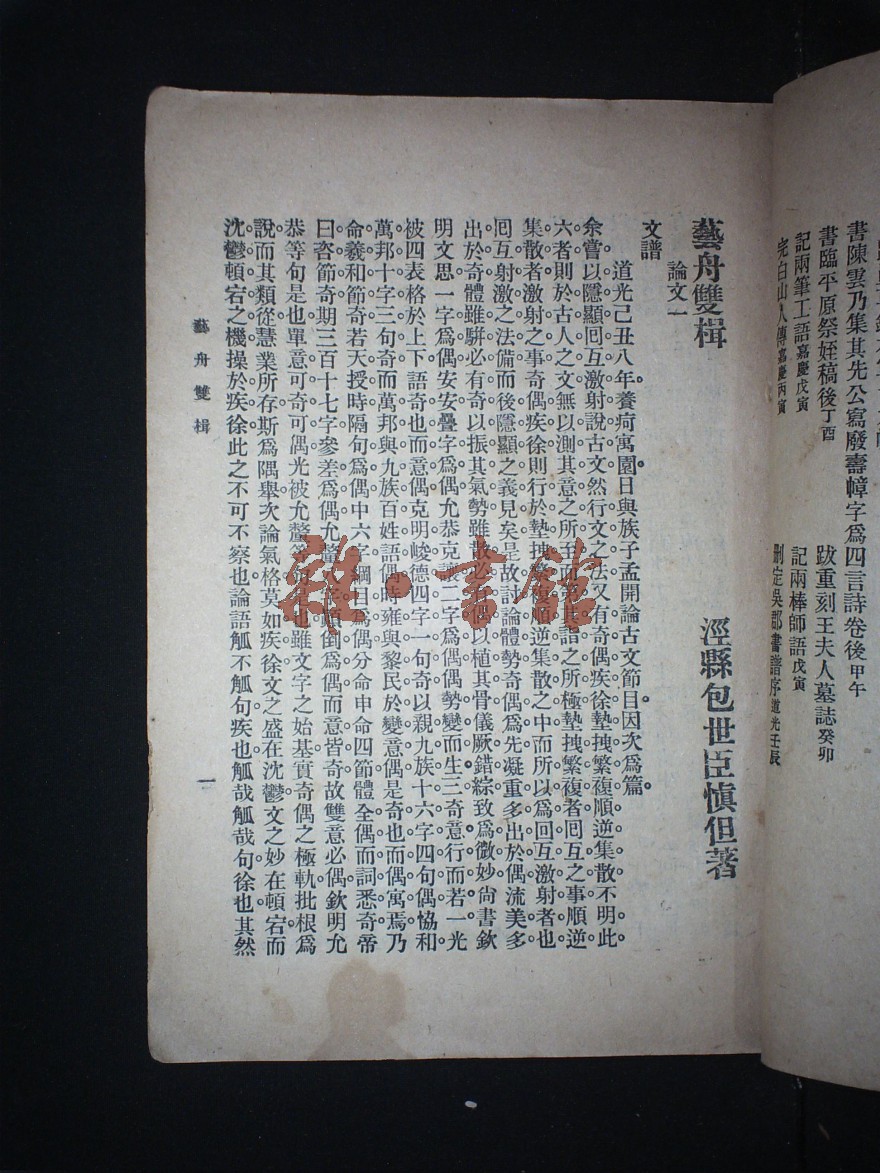 書陳雲乃集其先公寫廢壽幛字爲四言詩卷後甲午
書臨平原祭姪稿後丁酉
跋重刻王夫人墓誌癸卯
記兩筆工語嘉慶戊寅
記兩棒師語戊寅
完白山人傳嘉慶丙寅
刪定吳郡書譜序道光壬辰
藝舟雙楫
涇縣包世臣愼伯著
論文一
文譜
道光己丑八年養疴寓園日與族子孟開論古文節目因次爲篇
余嘗以隱顯回互激射說古文然行文之法又有奇偶疾徐墊拽繁複順逆集散不明此
六者則於古人之文無以測其意之所至而第其譜之所極墊拽繁複者回互之事順逆
集散者激射之事奇偶疾徐則行於墊拽繁複順逆集散之中而所以爲回互激射者也
回互射激之法備而後隱顯之義見矣是故討論體勢奇偶爲先凝重多出於偶流美多
出於奇體雖駢必有奇以振其氣勢雖散必有偶以植其骨儀厥錯綜致爲微妙尚書欽
明文思一字爲偶安安疊字爲偶允恭克讓二字爲偶偶勢變而生三奇意行而若一光
被四表格於上下語奇也而意偶克明峻德四字一句奇以親九族十六字四句偶協和
萬邦十字三句奇而萬邦與九族百姓語偶時雍與黎民於變意偶是奇也而偶寓焉乃
命羲和節奇若天授時隔句爲偶中六字綱目爲偶分命申命四節體全偶而詞悉奇帝
曰咨節奇期三百十七字參差爲偶允釐八字顚倒爲偶而意皆奇故雙意必偶欽明允
恭等句是也單意可奇可偶光被允釐等句是也雖文字之始基實奇偶之極軌批根爲
說而其類從慧業所存斯爲隅舉次論氣格莫如疾徐文之盛在沈鬱文之妙在頓宕而
沈鬱頓宕之機操於疾徐此之不可不察也論語觚不觚句疾也觚哉觚哉句徐也其然
藝舟雙楫
一
雜·書館